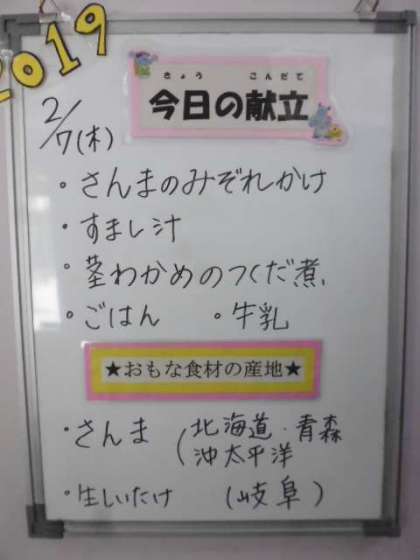 2019
きょう こんだて
今日の献立
2/7(木)
・さんまのみぞれかけ
・すまし汁
・茎わかめのつくだ煮
・ごはん ・牛乳
★おもな食材の産地★
・さんま (北海道・青森
沖太平洋
・生しいたけ (岐阜)